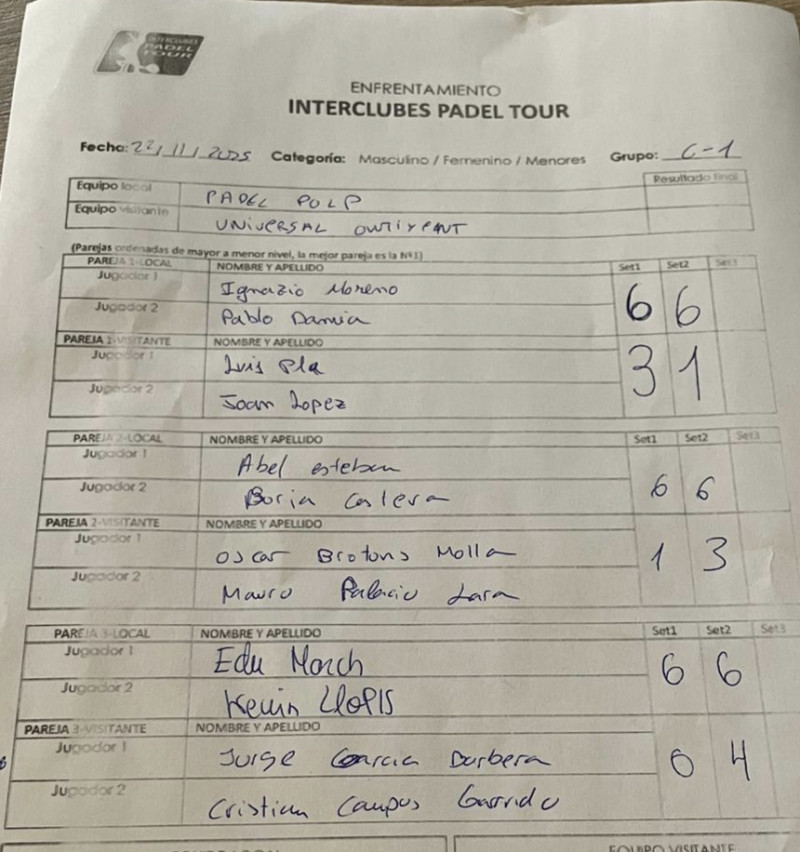 INTERCLUBES
PADEL
TOUR
ENFRENTAMIENTO
INTERCLUBES PADEL TOUR
Fecha: 22/11/2025 Categoría: Masculino / Femenino / Menores Grupo: C-1
Resultado Final
Equipo local PADEL POLP
Equipo visitante UNIVERSAL ONTIYENT
(Parejas ordenadas de mayor a menor nivel, la mejor pareja es la Nº1)
PAREJA 1-LOCAL NOMBRE Y APELLIDO Set1 Set2 Set3
Jugador 1 Ignazio Moreno
6 6
Jugador 2 Pablo Damia
PAREJA 1-VISITANTE NOMBRE Y APELLIDO
Jugador 1 Luis Pla
3 1
Jugador 2 Joan Lopez
PAREJA 2-LOCAL NOMBRE Y APELLIDO Set1 Set2 Set3
Jugador 1 Abel esteban
6 6
Jugador 2 Borja
PAREJA 2-VISITANTE NOMBRE Y APELLIDO
Jugador 1 Oscar Brotons Molla
1 3
Jugador 2 Mauro Palacio Lara
PAREJA 3-LOCAL NOMBRE Y APELLIDO Set1 Set2 Set3
Jugador 1 Edu March
6 6
Jugador 2 Kevin Llopis
PAREJA 3-VISITANTE NOMBRE Y APELLIDO
Jugador 1 Jorge Garcia Barbera
0 4
Jugador 2 Cristian Campos Garrido
EQUIPO VISITANTE